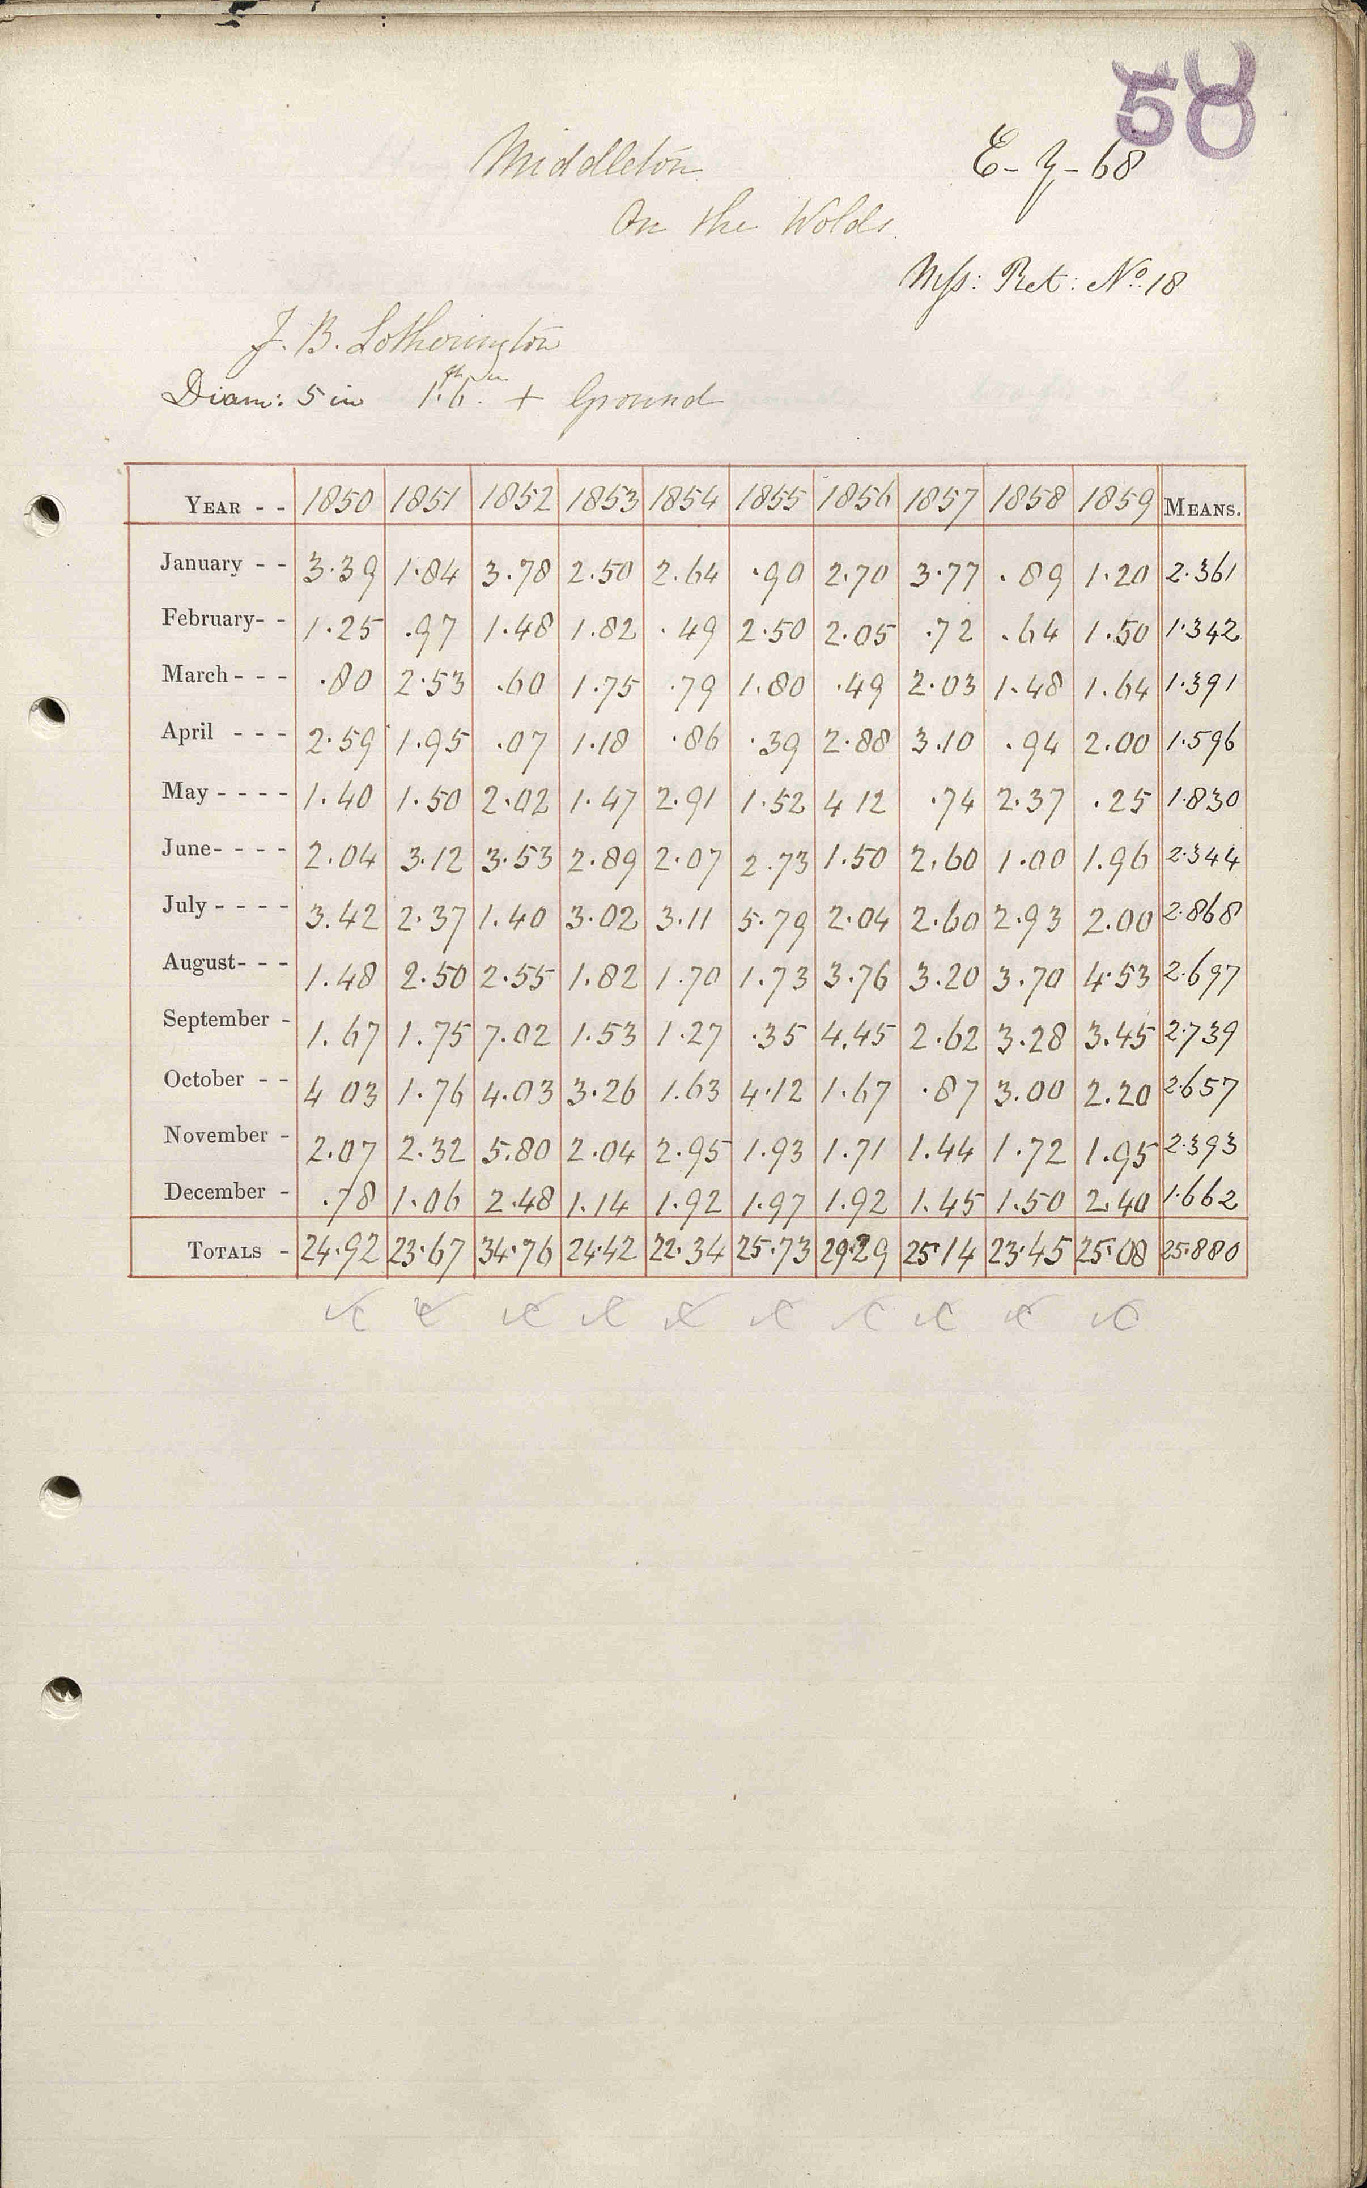 50
Middleton
E - Y - 68
On the Wolds
Mss: Ret: No. 18
J. B. Lotherington
Diam: 5 in 1ft 6in + Ground
YEAR - - 1850 1851 1852 1853 1854 1855 1856 1857 1858 1859 MEANS.
January - - 3.39 1.84 3.78 2.50 2.64 .90 2.70 3.77 .89 1.20 2.361
February- - 1.25 .97 1.48 1.82 .49 2.50 2.05 .72 .64 1.50 1.342
March - - - .80 2.53 .60 1.75 .79 1.80 .49 2.03 1.48 1.64 1.391
April - - - 2.59 1.95 .07 1.18 .86 .39 2.88 3.10 .94 2.00 1.596
May - - - - 1.40 1.50 2.02 1.47 2.91 1.52 4 12 .74 2.37 .25 1.830
June- - - - 2.04 3.12 3.53 2.89 2.07 2.73 1.50 2.60 1.00 1.96 2.344
July - - - - 3.42 2.37 1.40 3.02 3.11 5.79 2.04 2.60 2.93 2.00 2.868
August- - - 1.48 2.50 2.55 1.82 1.70 1.73 3.76 3.20 3.70 4.53 2.697
September - 1.67 1.75 7.02 1.53 1.27 .35 4.45 2.62 3.28 3.45 2.739
October - - 4 03 1.76 4.03 3.26 1.63 4.12 1.67 .87 3.00 2.20 2.657
November - 2.07 2.32 5.80 2.04 2.95 1.93 1.71 1.44 1.72 1.95 2.393
December - .78 1.06 2.48 1.14 1.92 1.97 1.92 1.45 1.50 2.40 1.662
TOTALS - 24.92 23.67 34.76 24.42 22.34 25.73 29.29 25.14 23.45 25.08 25.880